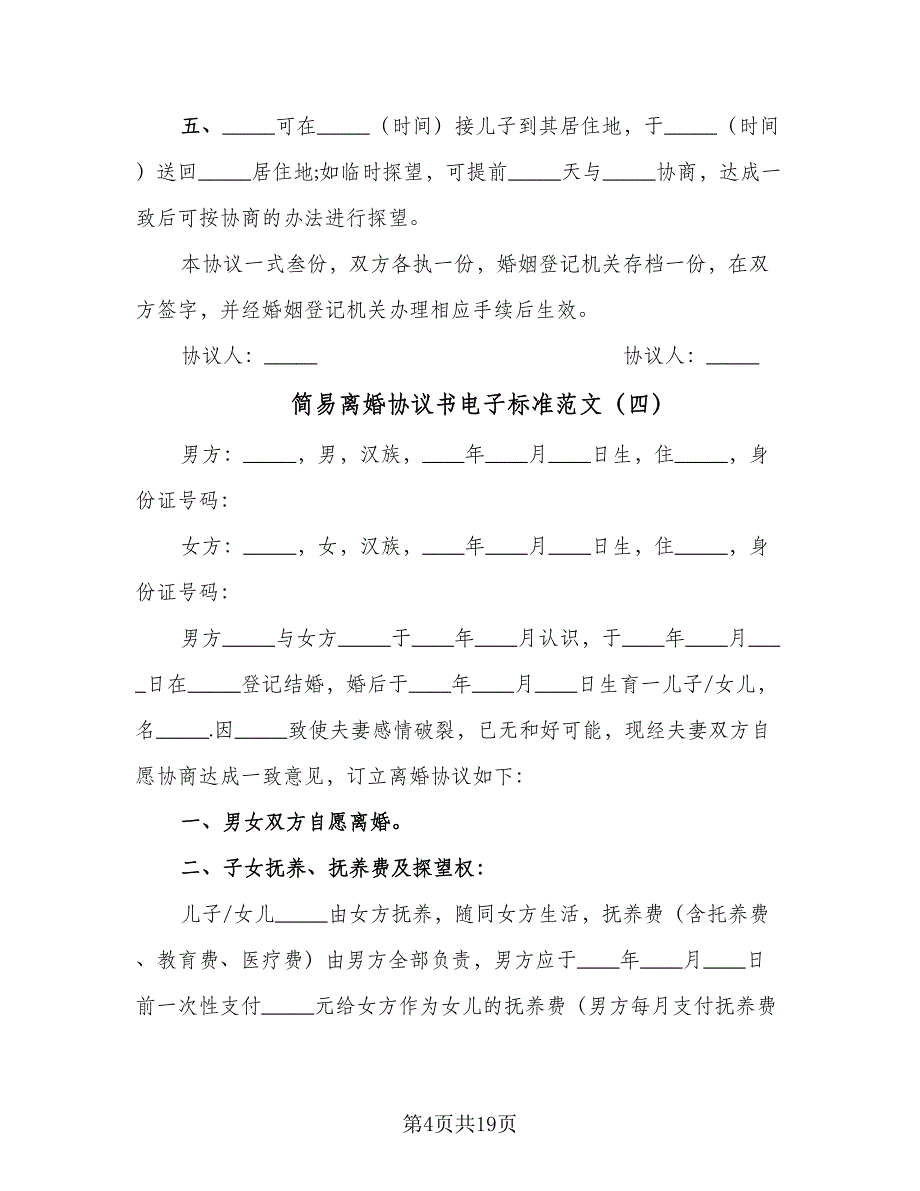 五、_____可在_____（时间）接儿子到其居住地，于_____（时间
）送回_____居住地;如临时探望，可提前_____天与_____协商，达成一
致后可按协商的办法进行探望。
本协议一式叁份，双方各执一份，婚姻登记机关存档一份，在双
方签字，并经婚姻登记机关办理相应手续后生效。
协议人：_____ 协议人：_____
简易离婚协议书电子标准范文（四）
男方：_____，男，汉族，____年____月____日生，住_____，身
份证号码：
女方：_____，女，汉族，____年____月____日生，住_____，身
份证号码：
男方_____与女方_____于____年____月认识，于____年____月___
_日在_____登记结婚，婚后于____年____月____日生育一儿子/女儿，
名_____.因_____致使夫妻感情破裂，已无和好可能，现经夫妻双方自
愿协商达成一致意见，订立离婚协议如下：
一、男女双方自愿离婚。
二、子女抚养、抚养费及探望权：
儿子/女儿_____由女方抚养，随同女方生活，抚养费（含托养费
、教育费、医疗费）由男方全部负责，男方应于____年____月____日
前一次性支付_____元给女方作为女儿的抚养费（男方每月支付抚养费
第4页共19页